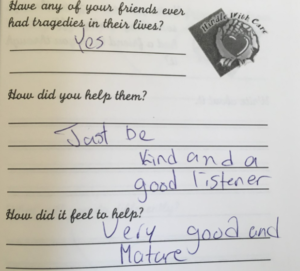 Have any of your friends ever
had tragedies in their lives?
Yes
Handle With Care
How did you help them?
Just be
kind and a
good listener
How did it feel to help?
Very good and
Mature